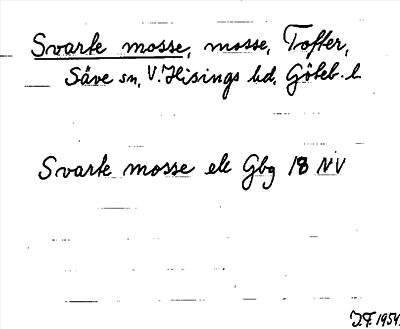 Svarte mosse, mosse, Tofter,
Säve sn, V. Hisings hd. Göteb. l.
Svarte mosse ek Gbg 18 NV
J.F. 1954.